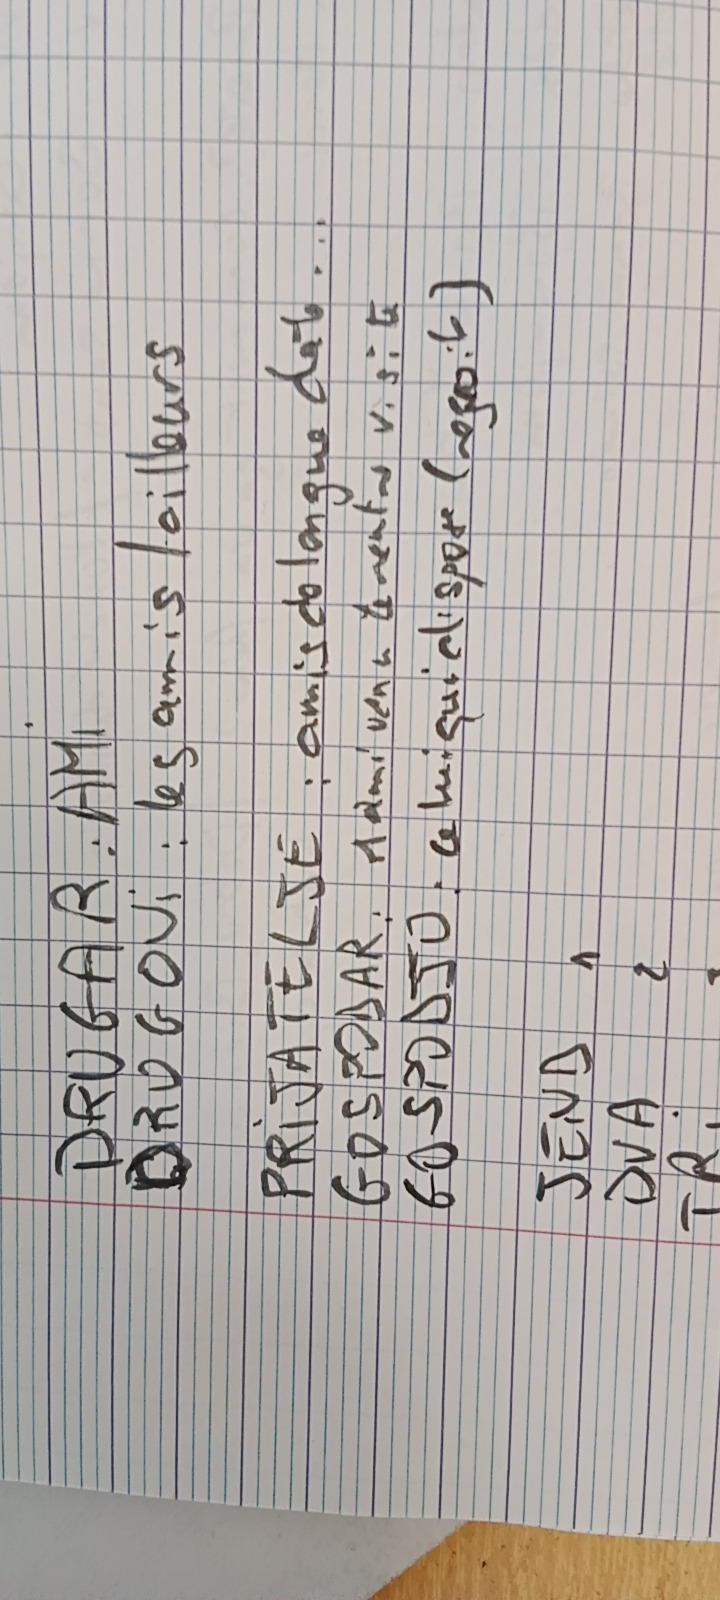 DRUGAR : AMi
DRUGOVi : les amis / ailleurs
PRiJATELJE : amis de longue date...
GOSPODAR : venu te rendre visite
GOSPODJO : celui qui dispose (
JEND 1
DVA 2
TRi